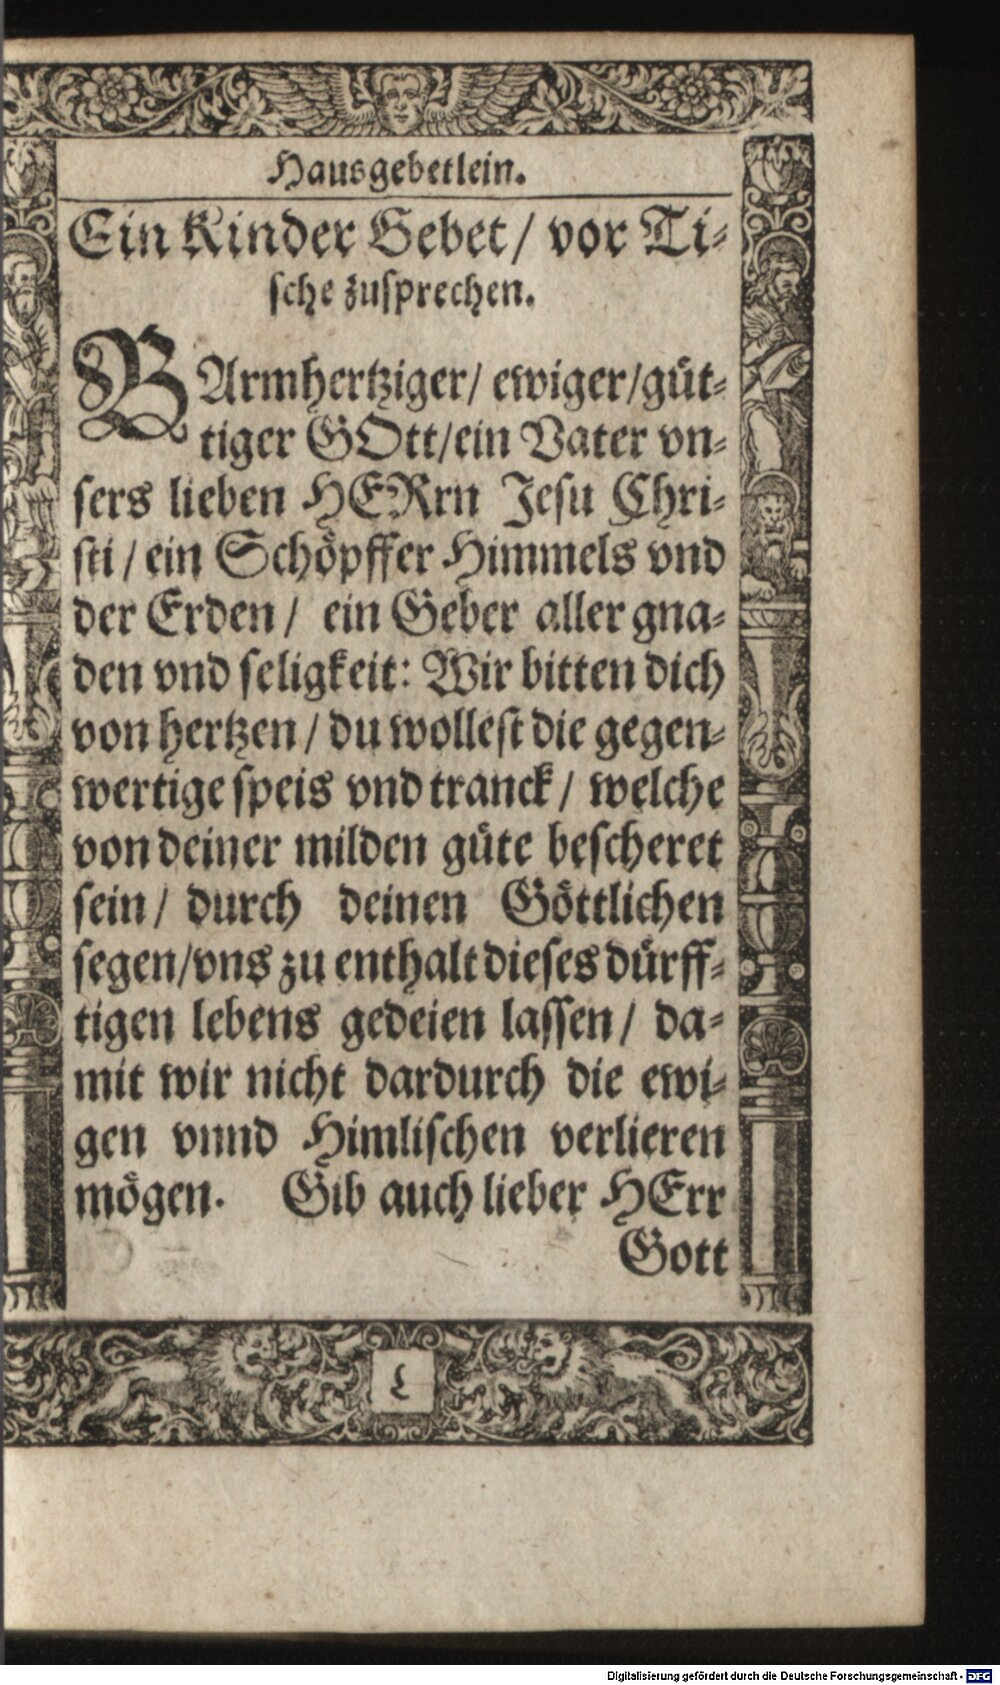 Hausgebetlein.
Ein Kinder Gebet / vor Ti⸗
sche zusprechen.
BArmhertziger / ewiger / güt⸗
tiger GOtt / ein Vater vn⸗
sers lieben HERrn Jesu Chri⸗
sti / ein Schöpffer Himmels vnd
der Erden / ein Geber aller gna⸗
den vnd seligkeit: Wir bitten dich
von hertzen / du wollest die gegen⸗
wertige speis vnd tranck / welche
von deiner milden güte bescheret
sein / durch deinen Göttlichen
segen / vns zu enthalt dieses dürff⸗
tigen lebens gedeien lassen / da⸗
mit wir nicht dardurch die ewi⸗
gen vnnd Himlischen verlieren
mögen. Gib auch lieber HErr
Gott
Digitalisierung gefördert durch die Deutsche Forschungsgemeinschaft - DFG